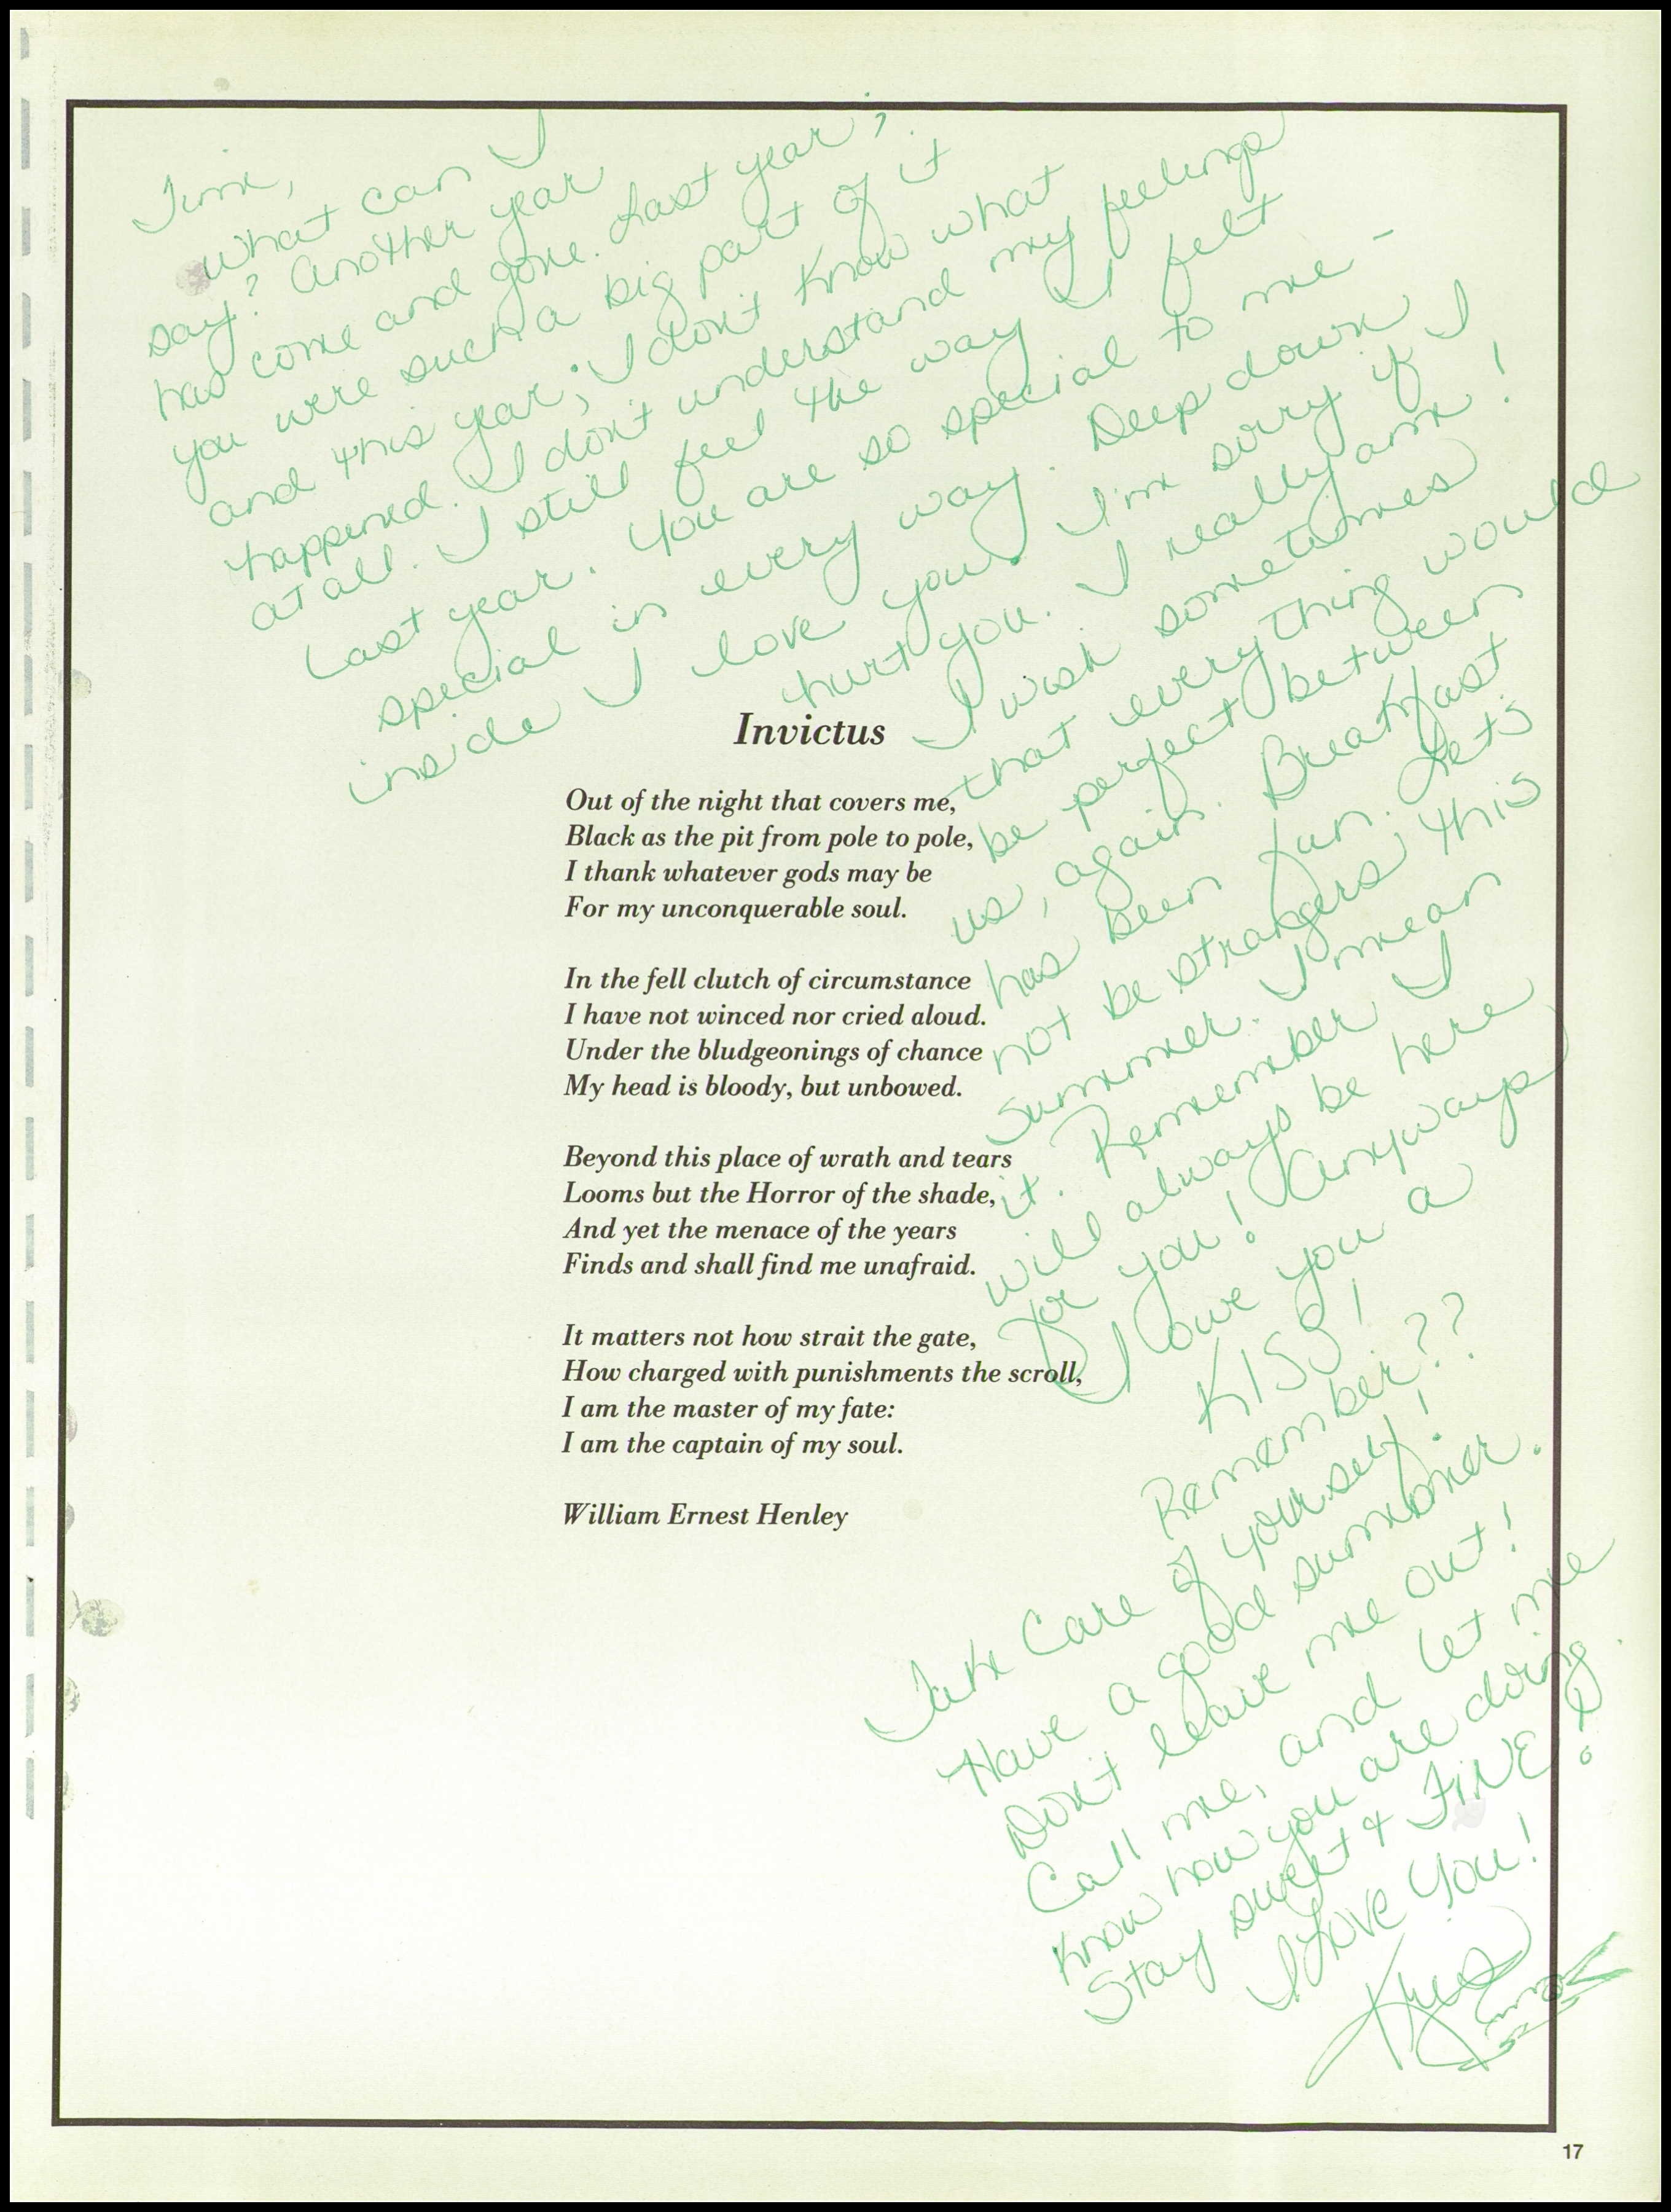 Jimx,
what can I
say? Another year
has come and gone. Last year,
you were such a big part of it
and this year; I don't know what
happened. I don't understand my feelings
at all. I still feel the way I felt
Last year. You are so special to me -
special in every way. Deep down
inside I love you. I'm sorry if I
hurt you. I really am!
I wish sometimes
that everything would
be perfect between
us, again. Breakfast
has been fun. Lets
not be strangers this
summer. I mean
it. Remember I
will always be here
for you! Anyways
I owe you a
KISS!
Remember??
Take Care of yourself!
Have a good summer.
Don't leave me out!
Call me, and let me
know how you are doing.
Stay sweet & FINE!
I Love You!
Invictus
Out of the night that covers me,
Black as the pit from pole to pole,
I thank whatever gods may be
For my unconquerable soul.
In the fell clutch of circumstance
I have not winced nor cried aloud.
Under the bludgeonings of chance
My head is bloody, but unbowed.
Beyond this place of wrath and tears
Looms but the Horror of the shade,
And yet the menace of the years
Finds and shall find me unafraid.
It matters not how strait the gate,
How charged with punishments the scroll,
I am the master of my fate:
I am the captain of my soul.
William Ernest Henley
17